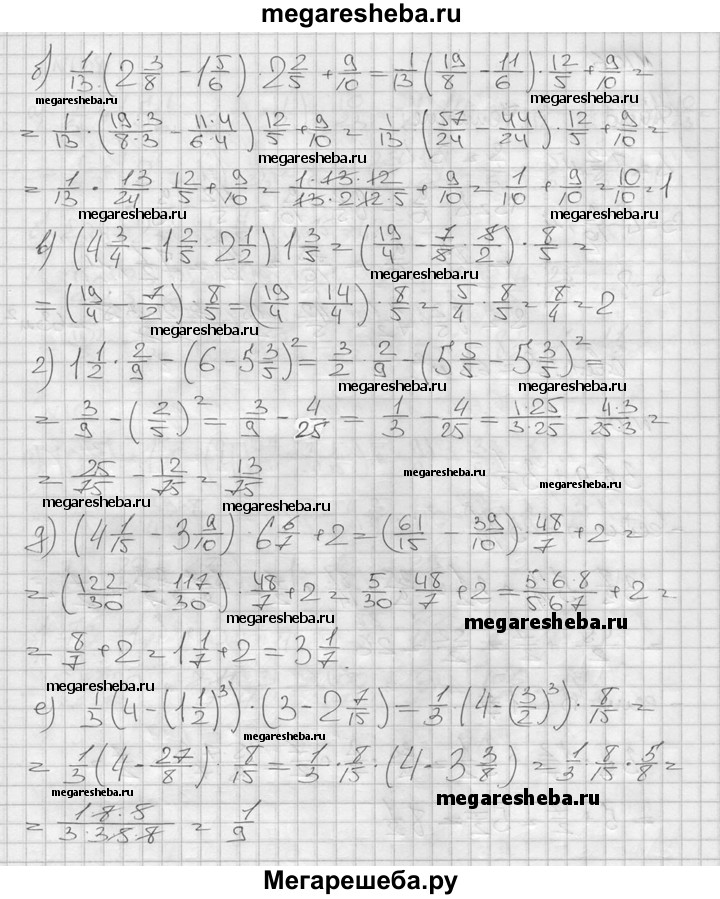 megaresheba.ru
б) 1/13 · (2 3/8 - 1 5/6) · 2 2/5 + 9/10 = 1/13 (19/8 - 11/6) · 12/5 + 9/10 =
megaresheba.ru megaresheba.ru
= 1/13 · (19·3/8·3 - 11·4/6·4) 12/5 + 9/10 = 1/13 · (57/24 - 44/24) · 12/5 + 9/10 =
megaresheba.ru
= 1/13 · 13/24 · 12/5 + 9/10 = 1·13·12/13·2·12·5 + 9/10 = 1/10 + 9/10 = 10/10 = 1
megaresheba.ru megaresheba.ru
в) (4 3/4 - 1 2/5 · 2 1/2) · 1 3/5 = (19/4 - 7/5 · 5/2) · 8/5 =
megaresheba.ru
= (19/4 - 7/2) · 8/5 = (19/4 - 14/4) · 8/5 = 5/4 · 8/5 = 8/4 = 2
megaresheba.ru
г) 1 1/2 · 2/9 - (6 - 5 3/5)² = 3/2 · 2/9 - (5 5/5 - 5 3/5)² =
megaresheba.ru megaresheba.ru
= 3/9 - (2/5)² = 3/9 - 4/25 = 1/3 - 4/25 = 1·25/3·25 - 4·3/25·3 =
megaresheba.ru
= 25/75 - 12/75 = 13/75
megaresheba.ru megaresheba.ru
д) (4 1/15 - 3 9/10) · 6 6/7 + 2 = (61/15 - 39/10) · 48/7 + 2 =
megaresheba.ru
= (122/30 - 117/30) · 48/7 + 2 = 5/30 · 48/7 + 2 = 5·6·8/5·6·7 + 2 =
megaresheba.ru megaresheba.ru
= 8/7 + 2 = 1 1/7 + 2 = 3 1/7.
megaresheba.ru
е) 1/3 (4 - (1 1/2)³) · (3 - 2 7/15) = 1/3 · (4 - (3/2)³) · 8/15 =
megaresheba.ru
= 1/3 (4 - 27/8) · 8/15 = 1/3 · 8/15 · (4 - 3 3/8) = 1/3 · 8/15 · 5/8 =
megaresheba.ru megaresheba.ru
= 1·8·5/3·3·5·8 = 1/9
megaresheba.ru
Мегарешеба.ру